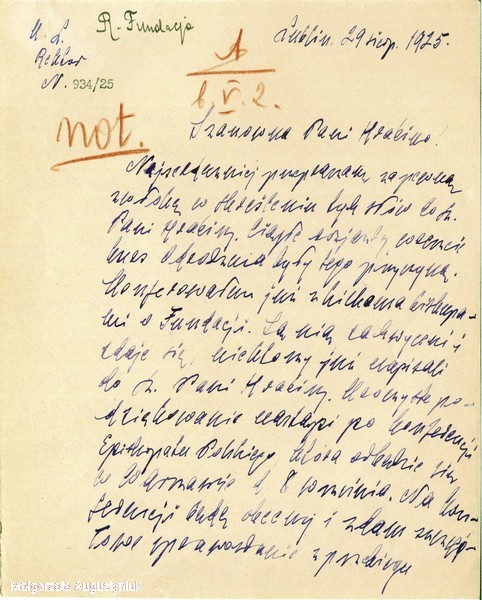 R. Fundacja
U. L.
Rektor
N. 934/25
Lublin, 29 sierp. 1925.
A
b V. 2.
not.
Szanowna Pani Hrabino!
Najserdeczniej przepraszam za pewną
zwłokę w skreśleniu tych słów do Sz.
Pani Hrabiny. Ciągłe rozjazdy wczasie
były tego przyczyną.
Konferowałem już z kilkoma biskupa-
mi o Fundacji. Są nią zachwyceni i
zdaje się, niektórzy już napisali
do Sz. Pani Hrabiny. po-
dziękowanie nastąpi po konferencji
Episkopatu Polskiego, która odbędzie się
w Warszawie d. 8 września. Na kon-
ferencji będę obecny i zdam szczegó-
łowe sprawozdanie z przebiegu
Małgorzata Augustyniak